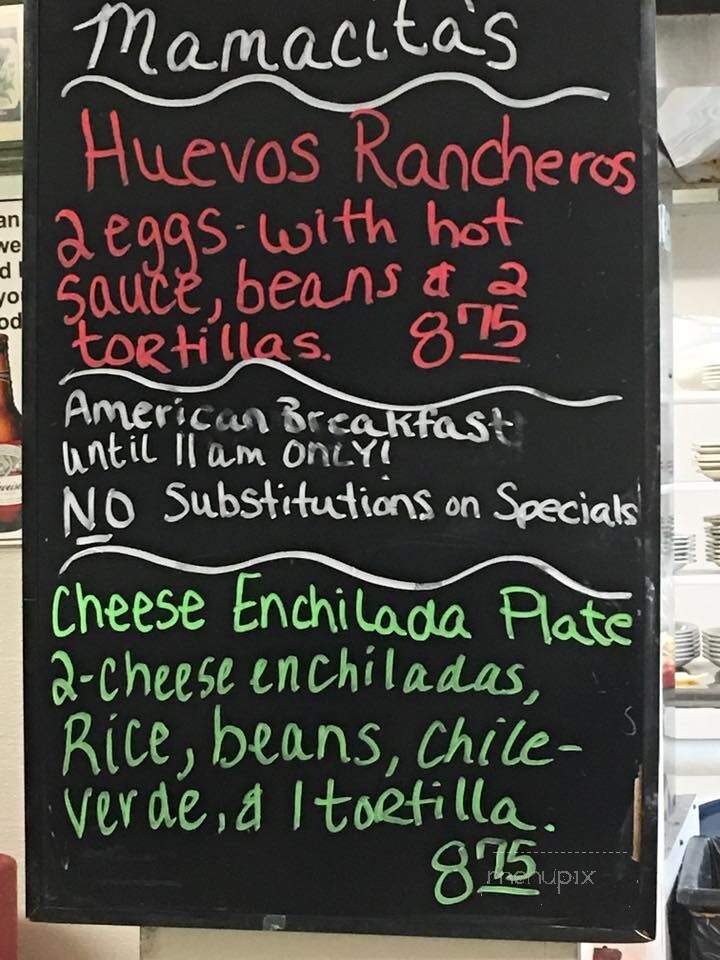 Mamacita's
Huevos Rancheros
2 eggs-with hot
sauce, beans & 2
tortillas. 8 75
American Breakfast
until 11 am ONLY!
NO Substitutions on Specials
Cheese Enchilada Plate
2-cheese enchiladas,
Rice, beans, chile-
verde, & 1 tortilla.
8 75
menupix
an
we
d
you
od